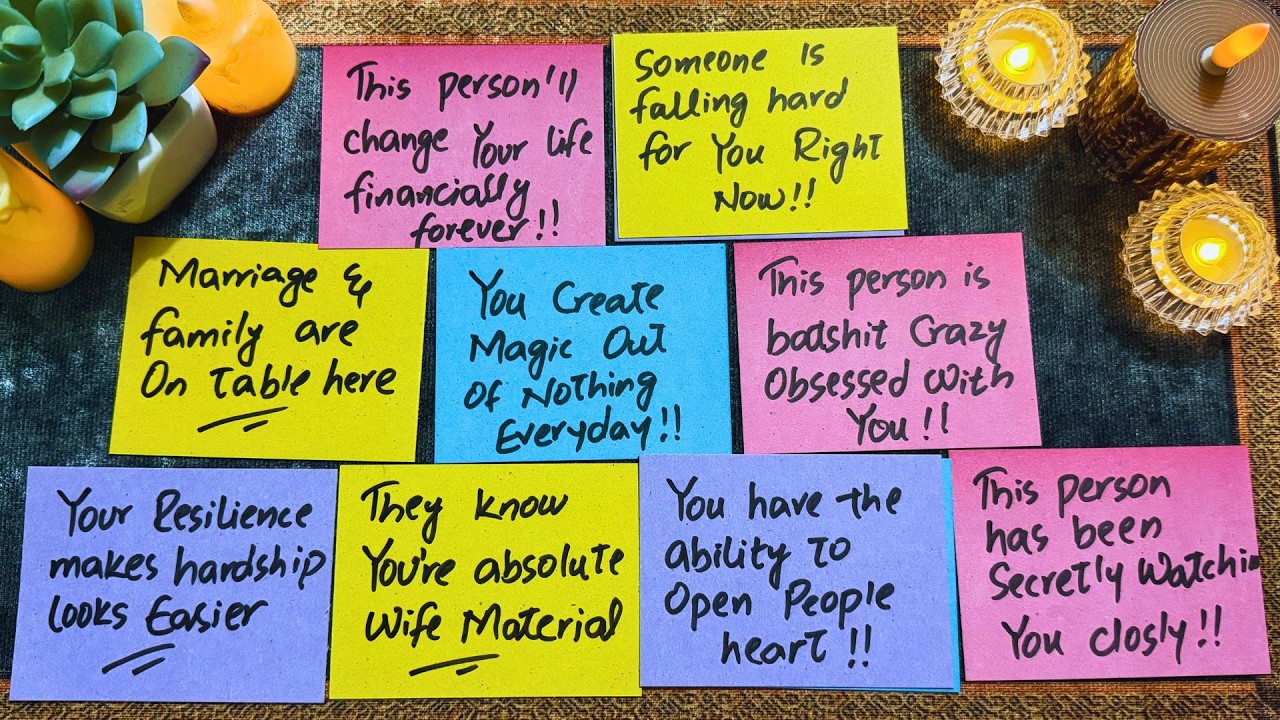 This person'll
change Your life
financially
forever!!
Someone Is
falling hard
for You Right
Now!!
Marriage &
family are
On Table here
You Create
Magic Out
Of Nothing
Everyday!!
This person is
batshit Crazy
Obsessed With
You!!
Your Resilience
makes hardship
looks Easier
They know
You're absolute
Wife Material
You have the
ability To
Open People
heart!!
This person
has been
Secretly Watchin
You closly!!